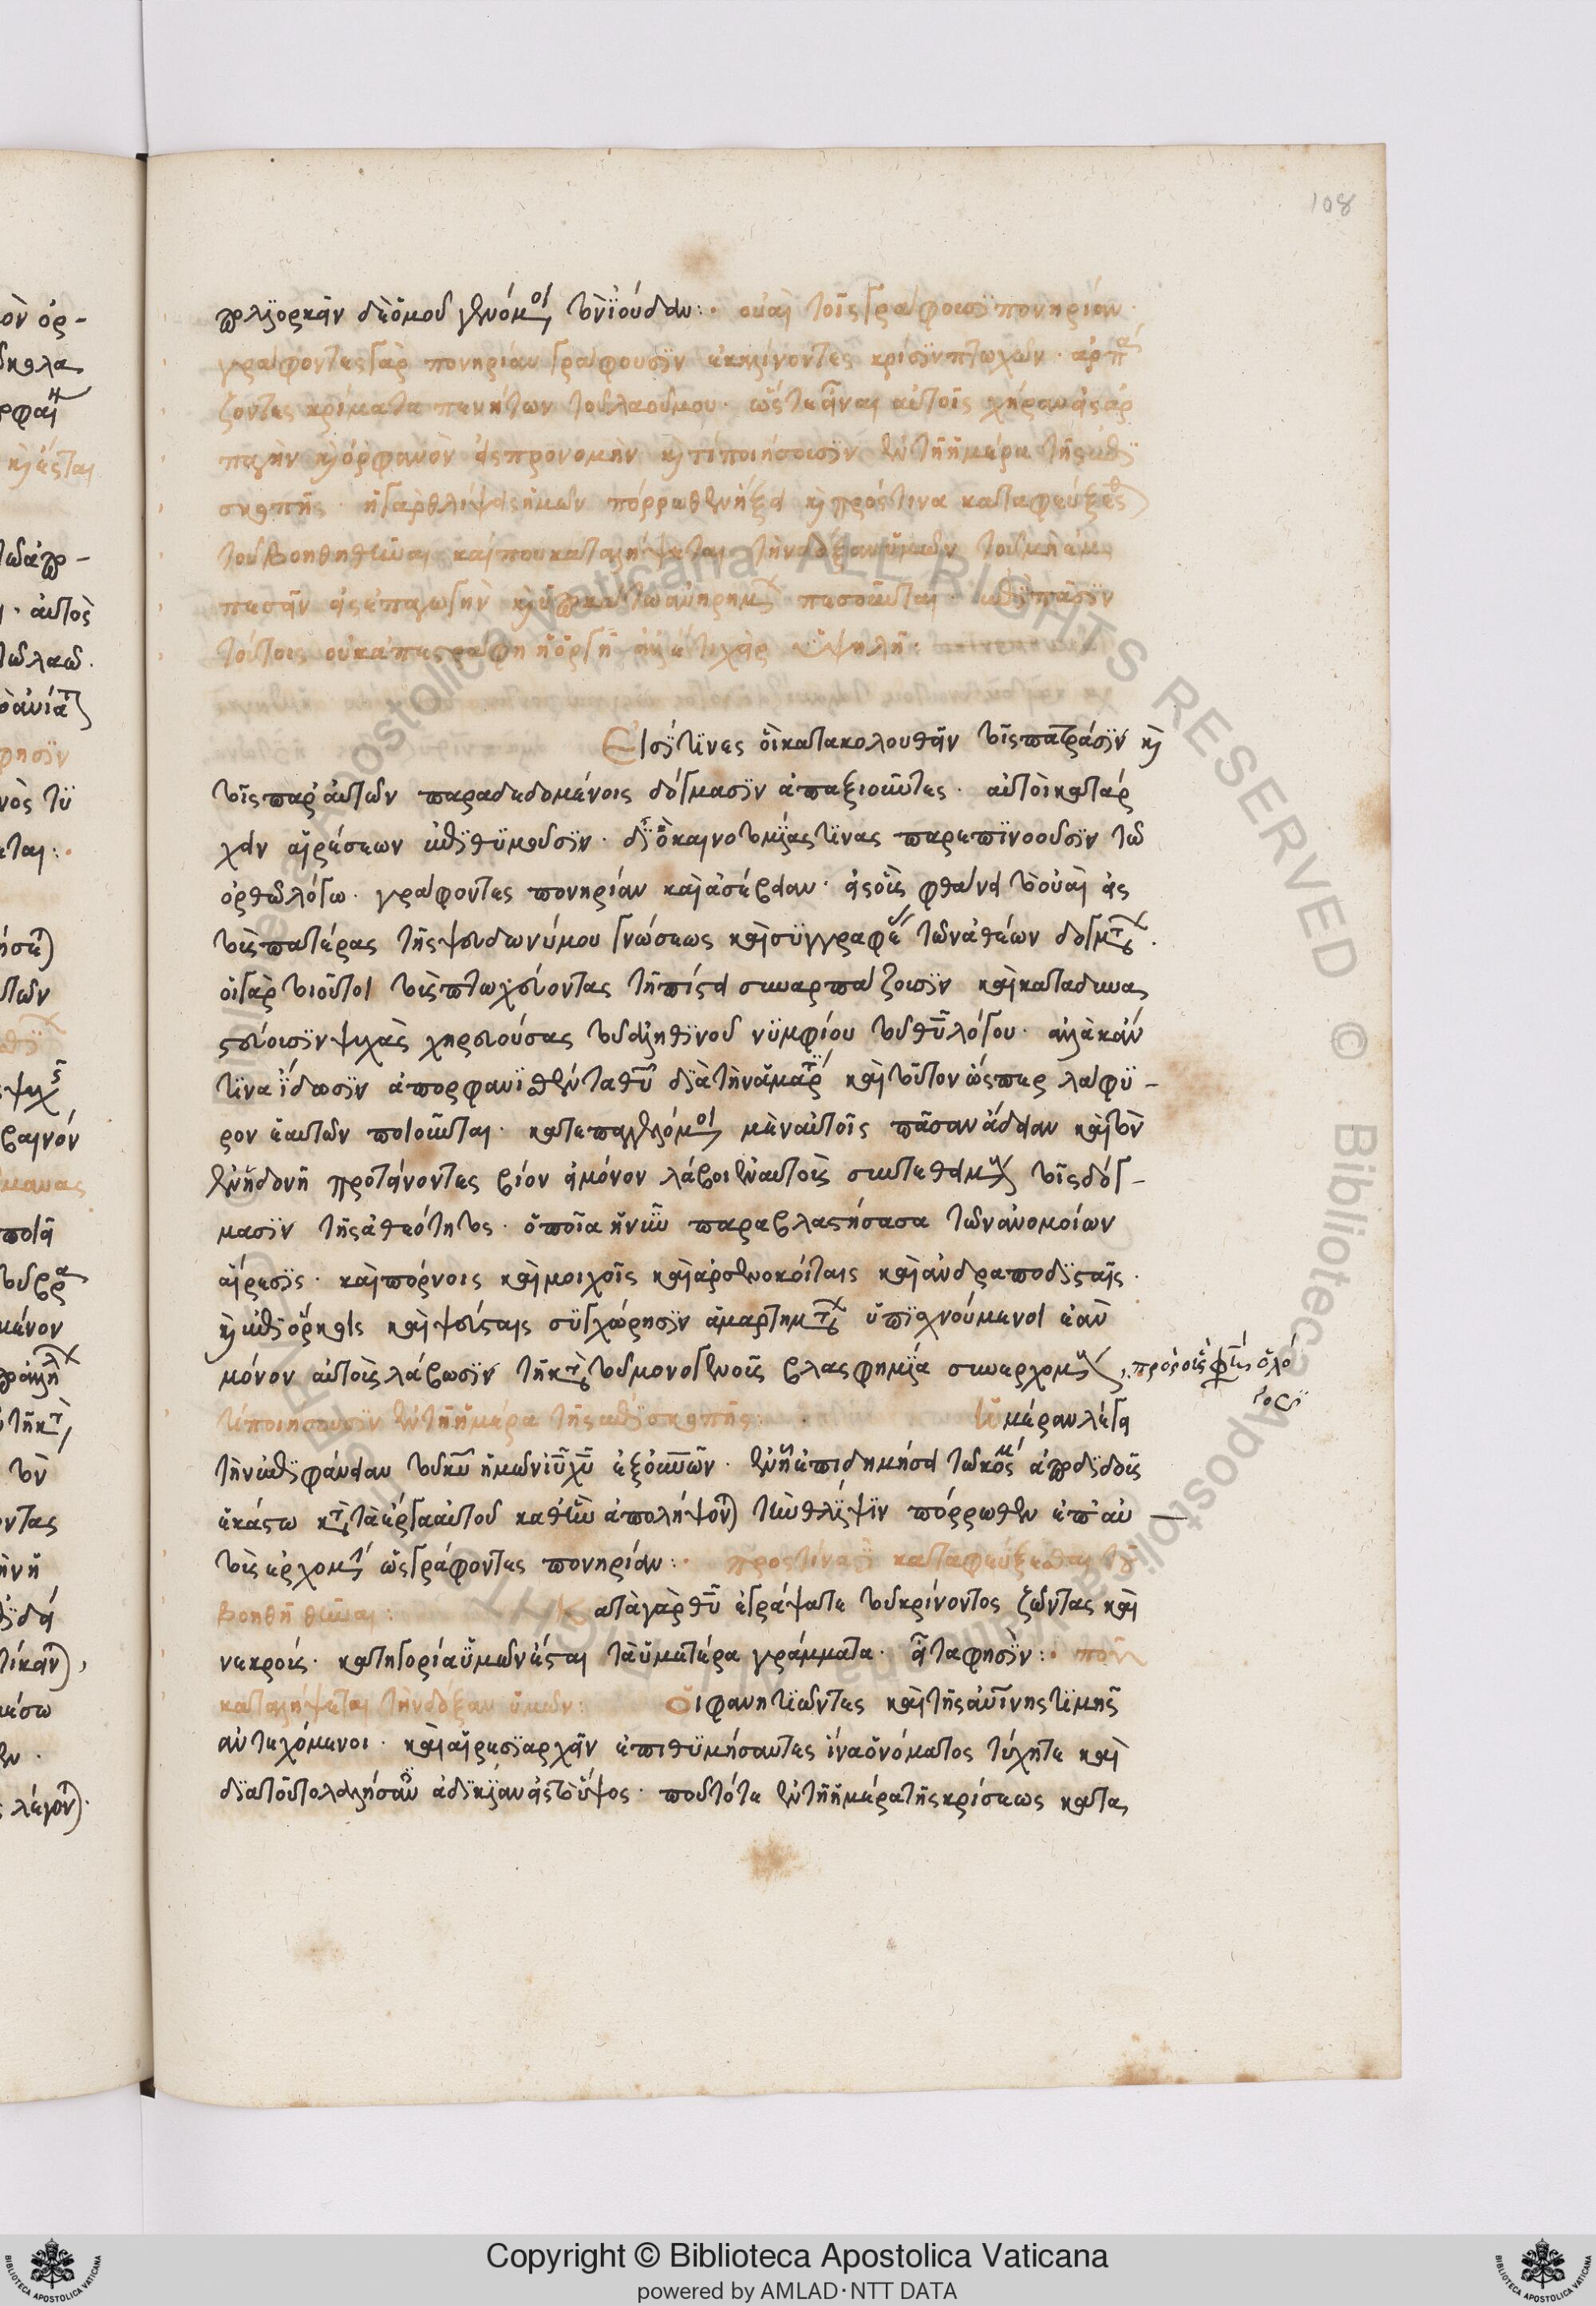 108
πολιορκεῖν δὲ ὁμοῦ γενόμενοι τὸν ἰούδαν:· οὐαὶ τοῖς γράφουσϊ πονηρίαν·
γράφοντες γὰρ πονηρίαν γράφουσϊν ἐκκλίνοντες κρίσϊν πτωχῶν· ἁρπά
ζοντες κρίματα πενήτων τοῦ λαοῦ μου· ὥστε εἶναι αὐτοῖς χήραν εἰς ἁρ
παγὴν κὶ ὀρφανὸν εἰς προνομὴν κὶ τί ποιήσουσϊν ἐν τῆ ἡμέρα τῆς ἐπϊ
σκοπῆς· ἡ γὰρ θλίψις ἡμῶν πόρρωθεν ἥξει κὶ πρὸς τίνα καταφεύξεσθε
τοῦ βοηθηθῆναι καὶ ποῦ καταλήψεται τὴν δόξαν ὑμῶν τοῦ μὴ ἐμ
πεσεῖν εἰς ἐπαγωγὴν
τούτοις οὐκ ἀπεστράφη ἡ ὀργὴ ἀλλ' ἔτι χεὶρ ὑψηλή:
Εἰσϊ τϊνες οἳ κατακολουθεῖν τοῖς πατράσϊν κὶ
τοῖς παρ' αὐτῶν παραδεδομένοις δόγμασϊν ἀπαξιοῦντες· αὐτοὶ κατάρ
χειν αἱρέσεων ἐπϊθϋμοῦσϊν· δϊὸ καινοτομίας τϊνας παρεπϊνοοῦσϊν τῶ
ὀρθῶ λόγω· γράφοντες πονηρίαν καὶ ἀσέβειαν· εἰς οὓς φθάνει τὸ οὐαὶ εἰς
τοὺς πατέρας τῆς ψευδωνύμου γνώσεως καὶ συγγραφεῖς τῶν ἀθέων δογμάτων·
οἱ γὰρ τοιοῦτοι τοὺς πτωχεύοντας τῆ πίστει συναρπάζουσϊν καὶ καταδυνας
τεύουσϊν ψυχὰς χηρευούσας τοῦ ἀληθϊνοῦ νϋμφίου τοῦ θῦ λόγου· ἀλλὰ κἂν
τϊνα ἴδωσϊν ἀπορφανϊσθέντα θῦ δϊὰ τὴν ἁμαρτίαν καὶ τοῦτον ὥσπερ λάφϋ-
ρον ἑαυτῶν ποιοῦνται· κατεπαγγελλόμενοι μὲν αὐτοῖς πᾶσαν ἄδειαν καὶ τὸν
ἐν ἡδονῆ προτείνοντες βίον εἰ μόνον λάβοιεν αὐτοὺς συντεθειμένους τοῖς δόγ-
μασϊν τῆς ἀθεότητος· ὁποῖα ἡ νῦν παραβλαστήσασα τῶν ἀνομοίων
αἵρεσϊς· καὶ πόρνοις καὶ μοιχοῖς καὶ ἀρσενοκοίταις καὶ ἀνδραποδϊσταῖς·
κὶ ἐπϊόρκοις καὶ ψεύσταις συγχώρησϊν ἁμαρτημάτων ὑπϊσχνούμενοι ἐὰν
μόνον αὐτοὺς λάβωσϊν τῆ κατὰ τοῦ μονογενοῦς βλασφημία συνερχομένους,
τί ποιήσουσϊν ἐν τῆ ἡμέρα τῆς ἐπϊσκοπῆς: ἡμέραν λέγει
τὴν ἐπϊφάνειαν τοῦ κῦ ἡμῶν ἰῦ χῦ ἐξ οὐνῶν· ἐν ἧ ἐπιδημήσει τῶ κόσμω ἀποδϊδοὺς
ἑκάστω κατὰ τὰ ἔργα αὐτοῦ καθ' ἣν ἀπολήψονται τὴν θλίψϊν πόρρωθεν ἐπ' αὐ
τοὺς ἐρχομένην ὡς γράφοντες πονηρίαν:· πρὸς τίνα καταφεύξεσθαι τοῦ
βοηθηθῆναι: κατὰ γὰρ θῦ ἐγράψατε τοῦ κρίνοντος ζῶντας καὶ
νεκρούς· κατηγορία ὑμῶν ἔσται τὰ ὑμέτερα γράμματα· εἶτα φησϊν:· ποῦ
καταλήψεται τὴν δόξαν ὑμῶν: οἱ φανητϊῶντες καὶ τῆς ἀνθρωπίνης τϊμῆς
ἀντεχόμενοι· καὶ αἱρεσϊαρχεῖν ἐπιθϋμήσαντες ἵνα ὀνόματος τύχητε καὶ
δϊὰ τοῦτο λαλήσαντες ἀδϊκίαν εἰς τὸ ὕψος· ποῦ τότε ἐν τῆ ἡμέρα τῆς κρίσεως κατα
Copyright © Biblioteca Apostolica Vaticana
powered by AMLAD·NTT DATA